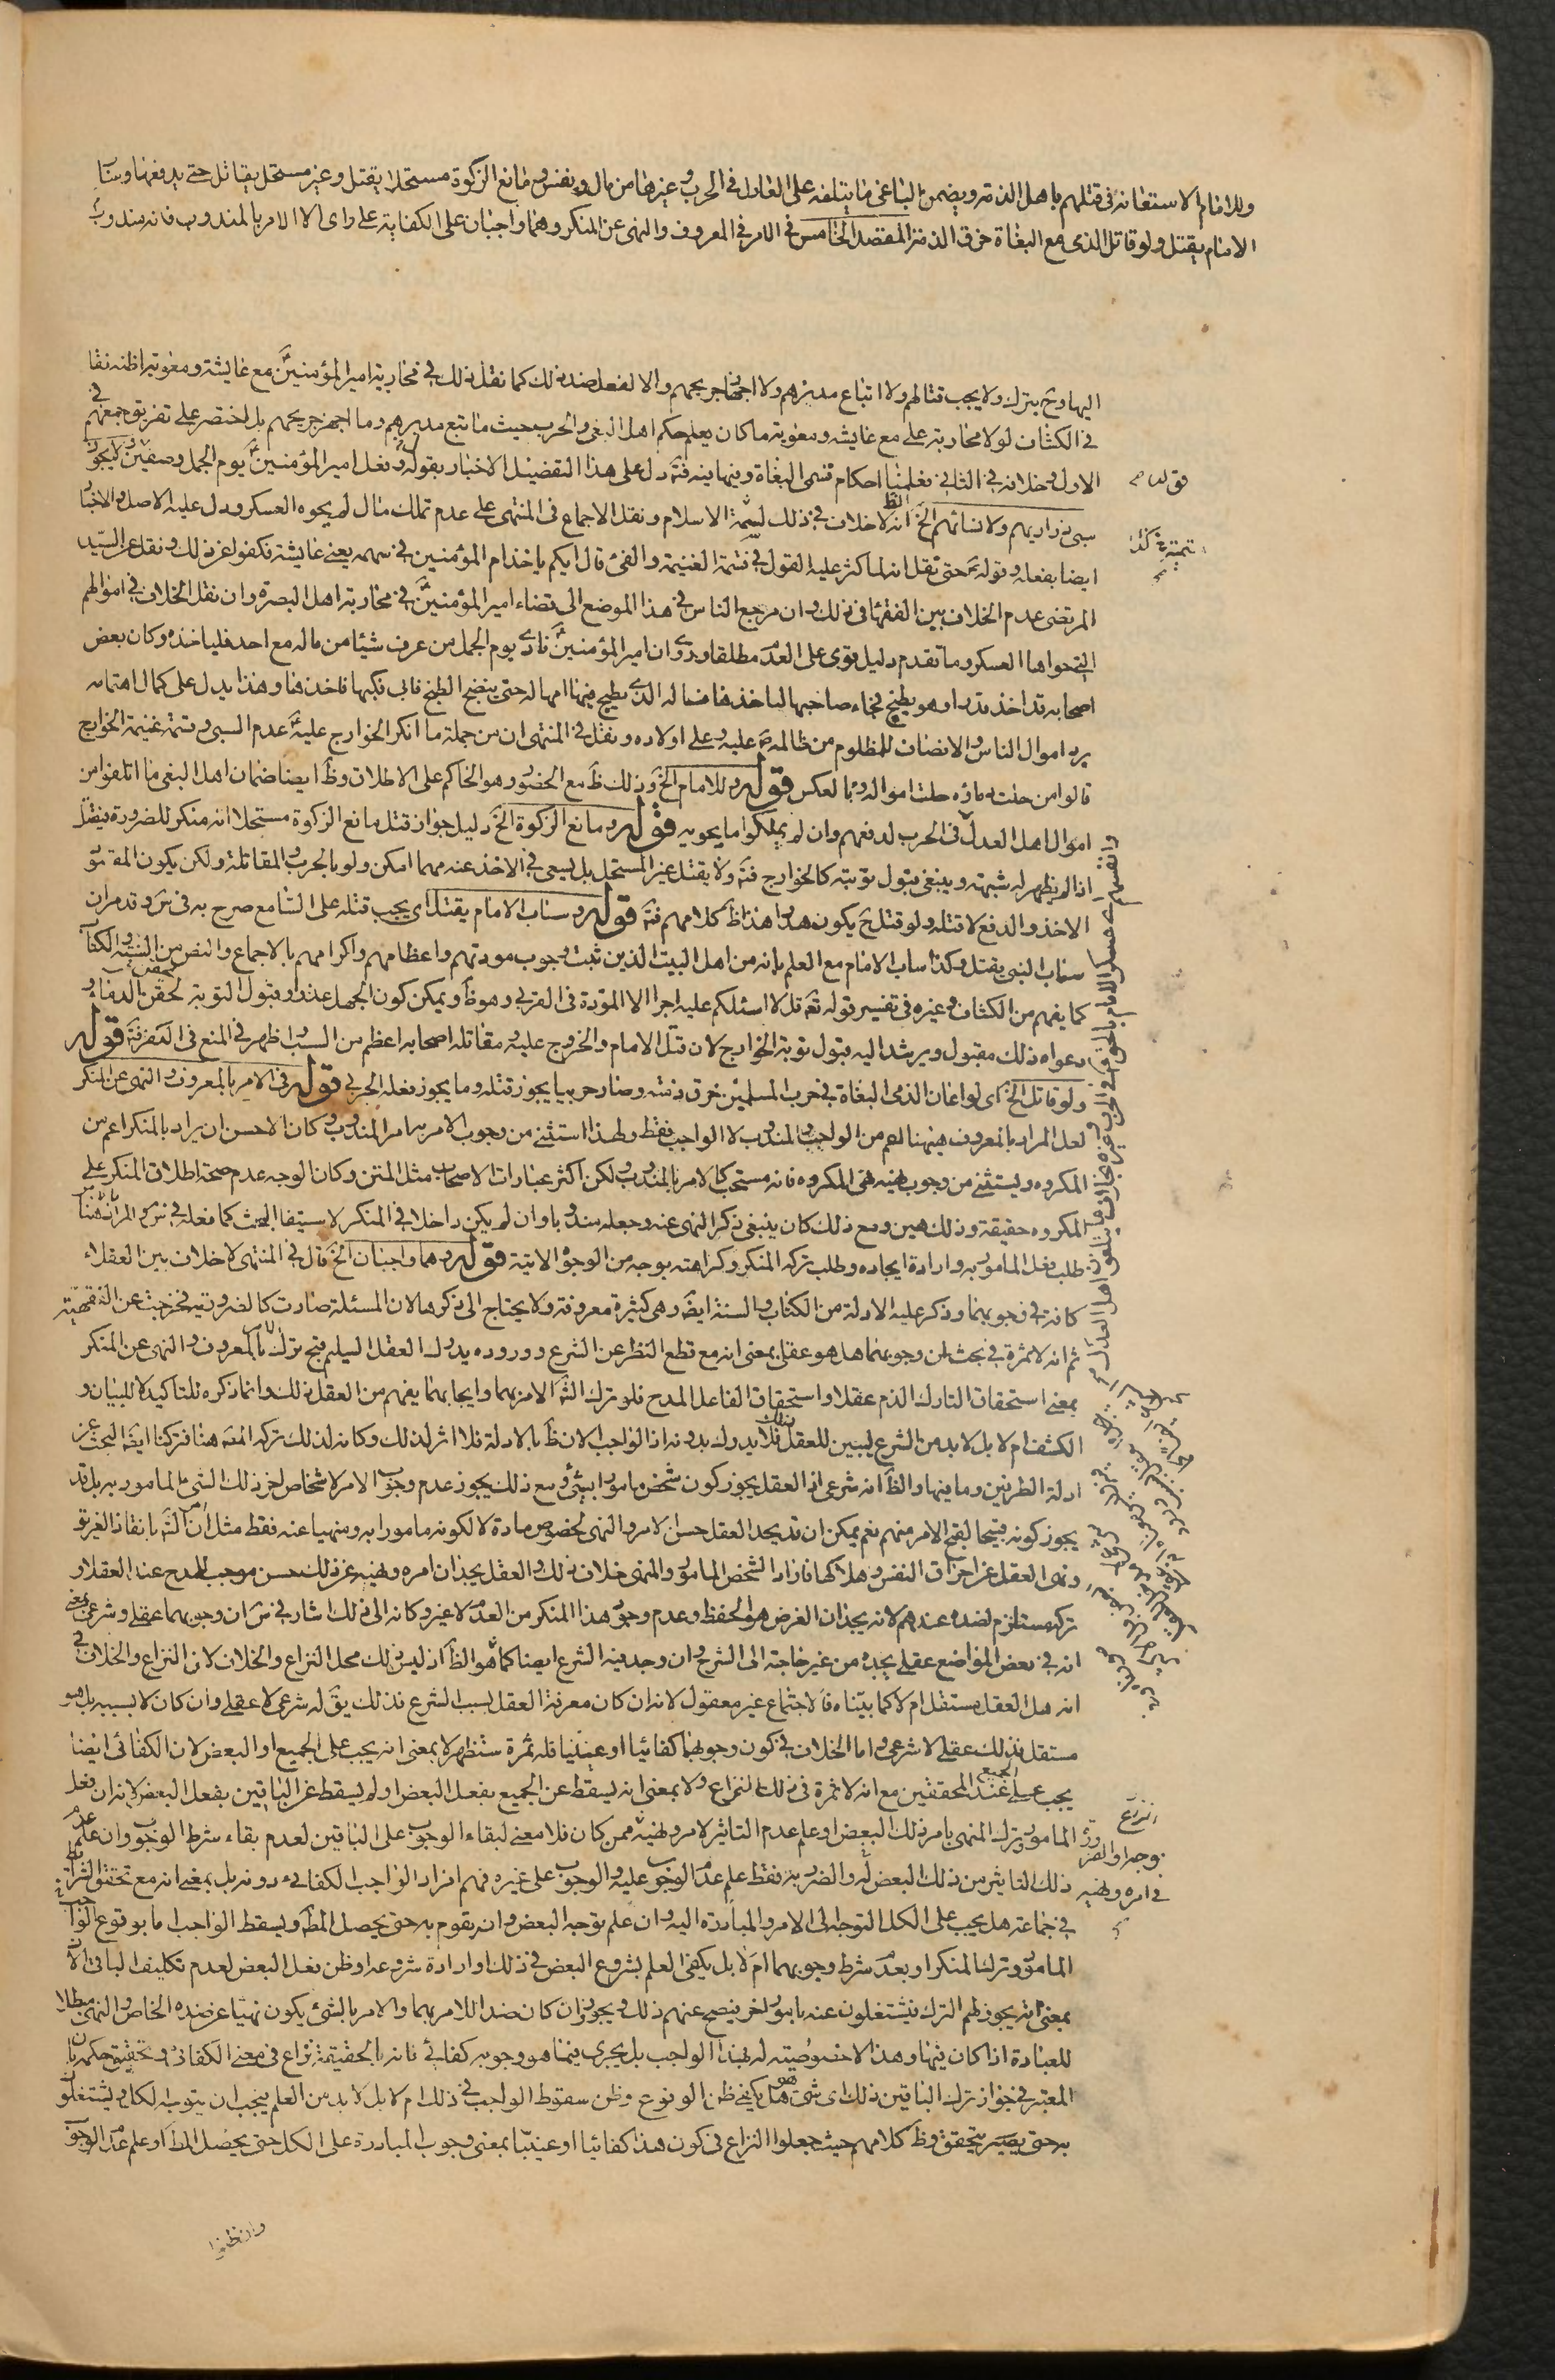 وللامام الاستعانة فى قتلهم باهل الذمة ويضمن الباغى ما يتلفه على العادل فى الحرب و غيرها من مال و نفس و مانع الزكوة مستحلا يقتل و غير مستحل يقاتل حتى يدفعها و ساب
الامام يقتل ولو قاتل الذمى مع البغاة خرق الذمة المقصد الخامس فى الامر فى المعروف والنهى عن المنكر وهما واجبان على الكفاية على راى الا الامر بالمندوب فانه مندوب
اليها وح يترك ولا يجب قتالهم ولا اتباع مدبرهم ولا اجهاز جريحهم والا لفعل ضد ذلك كما نقل ذلك فى محاربة امير المؤمنين ع مع عايشة ومعوية اظنه نقا
فى الكشاف لولا محاربة على مع عايشه ومعوية ما كان يعلم حكم اهل البغى والحرب حيث ما تبع مدبرهم وما اجهز جريحهم بل اختصر على تفريق جمعهم فى
الاول وخلافه فى الثانى فعلمنا احكام قسمى البغاة وبينهما فئة دل على هذا التفصيل الاخبار بقوله و فعل امير المؤمنين ع يوم الجمل وصفين لا يجوز
سبى ذراريهم ولا نسائهم الخ الظ انه لا خلاف فى ذلك لشبهة الاسلام ونقل الاجماع فى المنتهى على عدم تملك مال لم يحوه العسكر ودل عليه الاصل والاخبا
ايضا بفعله وقوله ع حتى نقل انه لما كثر عليه القول فى قسمة الغنيمة والفئ قال ايكم ياخذ ام المؤمنين فى سهمه يعنى عايشة فكفوا عن ذلك ونقل عن السيد
المرتضى عدم الخلاف بين الفقهاء فى ذلك وان مرجع الناس فى هذا الموضع الى قضاء امير المؤمنين ع فى محاربة اهل البصرة وان نقل الخلاف فى اموالهم
التى حواها العسكر وما تقدم دليل قوى على العدم مطلقا وروى ان امير المؤمنين ع نادى يوم الجمل من عرف شيئا من ماله مع احد فلياخذه وكان بعض
اصحابه قد اخذ قدرا وهو يطبخ فجاء صاحبها لياخذها فساله الذى يطبخ فيها امهاله حتى ينضج الطبخ فابى فكبها فاخذها وهذا يدل على كمال اهتمامه
برد اموال الناس والانصاف للمظلوم من ظالمه ع عليه وعلى اولاده ونقل فى المنتهى ان من جملة ما انكر الخوارج عليه ع عدم السبى وقسمة غنيمة الخوارج
قالوا من حلت دماؤه حلت امواله وبالعكس قوله وللامام الخ وذلك ظ مع الحضور وهو الحاكم على الاطلاق وظ ايضا ضمان اهل البغى ما اتلفوا من
اموال اهل العدل فى الحرب لدفعهم وان لم يملكوا ما يحويه قوله ومانع الزكوة الخ دليل جواز قتل مانع الزكوة مستحلا انه منكر للضرورة فيقتل
اذا لم يظهر له شبهة وينبغى قبول توبته كالخوارج فئة ولا يقتل غير المستحل بل يسعى فى الاخذ عنه مهما امكن ولو بالحرب والمقاتلة ولكن يكون المقصو
الاخذ والدفع لا قتله ولو قتل ح يكون هدرا هذا ظ كلامهم فئة قوله وساب الامام يقتل اى يجب قتله على السامع صرح به فى ش وقد مر ان
ساب النبى يقتل وكذا ساب الامام مع العلم بانه من اهل البيت الذين ثبت وجوب مودتهم واعظامهم واكرامهم بالاجماع والنص من السنة والكتاب
كما يفهم من الكشاف وغيره فى تفسير قوله تع قل لا اسئلكم عليه اجرا الا المودة فى القربى وهو ظ ويمكن كون الجهل عذرا وقبول التوبة لحقن الدماء و
دعواه ذلك مقبول ويرشد اليه قبول توبة الخوارج لان قتل الامام والخروج عليه ومقاتله اصحابه اعظم من السب اظهر فى المنع فى التفرقة قوله
ولو قاتل الخ اى لو اعان الذمى البغاة فى حرب المسلمين خرق ذمته وصار حربيا يجوز قتله وما يجوز فعله الحربى قوله فى الامر بالمعروف والنهى عن المنكر
لعل المراد بالمعروف هيهنا اعم من الواجب والمندوب لا الواجب فقط ولهذا استثنى من وجوب الامر امر المندوب وكان الاحسن ان يراد بالمنكر اعم من
المكروه ويستثنى من وجوب نهيه نهى المكروه فانه مستحب كالامر بالمندوب ولكن اكثر عبارات الاصحاب مثل المتن وكان الوجه عدم صحة اطلاق المنكر على
المكروه حقيقة وذلك هين ومع ذلك كان ينبغى ذكر النهى عنه وجعله مندوبا وان لم يكن داخلا فى المنكر لاستيفا البحث كما فعله فى ش والمراد هنا
طلب فعل المامور به وارادة ايجاده وطلب تركه المنكر وكراهته بوجه من الوجوه الاتية قوله وهما واجبان الخ قال فى المنتهى لا خلاف بين العقلاء
كافة فى وجوبهما وذكر عليه الادلة من الكتاب والسنة ايضا وهى كثيرة معروفة ولا يحتاج الى ذكرها لان المسئلة صارت كالضرورية فخرجت عن الفقهية
ثم انه لا ثمرة فى بحث ان وجوبهما هل هو عقلى بمعنى انه مع قطع النظر عن الشرع ووروده يدرك العقل السليم قبح ترك الامر بالمعروف والنهى عن المنكر
بمعنى استحقاق التارك الذم عقلا واستحقاق الفاعل المدح فلو ترك الش الامر بهما وايجابهما يفهم من العقل ذلك وانما ذكره للتاكيد لا للبيان و
الكشف ام لا بل لابد من الشرع ليبين للعقل ذلك فلا يدرك بدونه اذ الواجب الان ظ بالادلة فلا اثر لذلك وكانه لذلك تركه المصه هنا فتركنا ايضا البحث عن
ادلة الطرفين وما فيها والظ انه شرعى اذ العقل يجوز كون شخص مامورا بشئ ومع ذلك يجوز عدم وجوب الامر لاشخاص اخر ذلك الشئ بالمامور به بل قد
يجوز كونه قبيحا لقبح الامر منهم نعم يمكن ان قد يجد العقل حسن الامر والنهى لخصوص مادة لا لكونه مامورا به ومنهيا عنه فقط مثل امر الش بانقاذ الغريق
ونهى العقل عن احراق النفس وهلاكها فاراد الشخص المامور والمنهى خلاف ذلك والعقل يجد ان امره ونهيه عن ذلك حسن موجب للمدح عند العقلاء و
تركه مستلزم لضده عندهم لانه يجد ان الغرض هو الحفظ وعدم وجود هذا المنكر من العدم لا غير وكانه الى ذلك اشار فى ش ان وجوبهما عقلى وشرعى يعنى
انه فى بعض المواضع عقلى يجده من غير حاجة الى الشرع وان وجد فيه الشرع ايضا كما هو الظ اذ ليس ذلك محل النزاع والخلاف لان النزاع والخلاف فى
انه هل العقل مستقل ام لا كما بيناه فالاجتماع غير معقول لانه ان كان معرفة العقل بسبب الشرع فذلك يق له شرعى لا عقلى وان كان لا بسببه بل هو
مستقل فذلك عقلى لا شرعى واما الخلاف فى كون وجوبهما كفائيا او عينيا فله ثمرة ستظهر لا بمعنى انه يجب على الجميع او البعض لان الكفائى ايضا
يجب على الجميع عند المحققين مع انه لا ثمرة فى ذلك النزاع ولا بمعنى انه يسقط عن الجميع بفعل البعض او لم يسقط عن الباقين بفعل البعض لانه ان فعل
المامور وترك المنهى بامر ذلك البعض او علم عدم التاثير لامره ونهيه ممن كان فلا معنى لبقاء الوجوب على الباقين لعدم بقاء شرط الوجوب وان علم عدم
ذلك التاثير من ذلك البعض له والضرر به فقط علم عدم الوجوب عليه والوجوب على غيره فهم افراد الواجب الكفائى دونه بل بمعنى انه مع تحقق الشرائط
فى جماعة هل يجب على الكل التوجه الى الامر والمبادرة اليه وان علم توجه البعض وان يقوم به حتى يحصل المط ويسقط الواجب اما بوقوع الواجب
المامور وترك المنكر او بعدم شرط وجوبهما ام لا بل يكفى العلم بشروع البعض فى ذلك او ارادة شروعه او ظن فعل البعض لعدم تكليف الباقى الان
بمعنى انه يجوز لهم الترك فيشتغلون عنه بامور اخر فيصح عنهم ذلك ويجوز وان كان ضدا للامر بهما والامر بالشئ يكون نهيا عن ضده الخاص والنهى مبطلا
للعبادة اذا كان فيها وهذا لا خصوصيته له بهذا الواجب بل يجرى فيما هو وجوبه كفائى فانه بالحقيقة نزاع فى معنى الكفائى وتحقيق حكمه بان
المعتبر فى جواز ترك الباقين ذلك اى شئ هو هل يكفى ظن الوقوع وظن سقوط الواجب فى ذلك ام لا بل لابد من العلم فيجب ان يتوجه الكل ويشتغلون
به حتى يصير يتحقق وظ كلامهم حيث جعلوا النزاع فى كون هذا كفائيا او عينيا بمعنى وجوب المبادرة على الكل حتى يحصل المط او علم عدم الوجوب
وان ظنوا